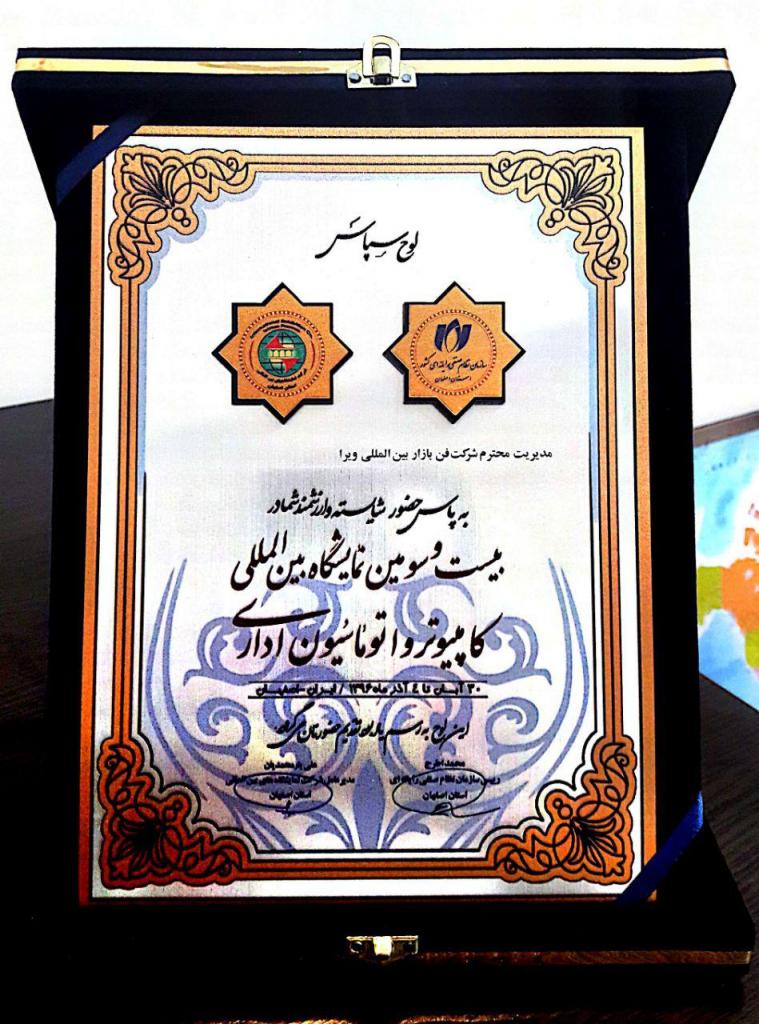 لوح سپاس
سازمان نظام صنفی رایانه‌ای کشور
استان اصفهان
مدیریت محترم شرکت فن بازار بین المللی ویرا
به پاس حضور شایسته و ارزشمند شما در
بیست و سومین نمایشگاه بین المللی
کامپیوتر و اتوماسیون اداری
۳۰ آبان تا ٤ آذر ماه ۱۳۹۶ / ایران-اصفهان
این لوح به رسم یادمان تقدیم حضورتان می گردد.
محمد اطرج
رییس سازمان نظام صنفی رایانه ای
استان اصفهان
علی یارمحمدیان
مدیر عامل شرکت نمایشگاه های بین المللی
استان اصفهان